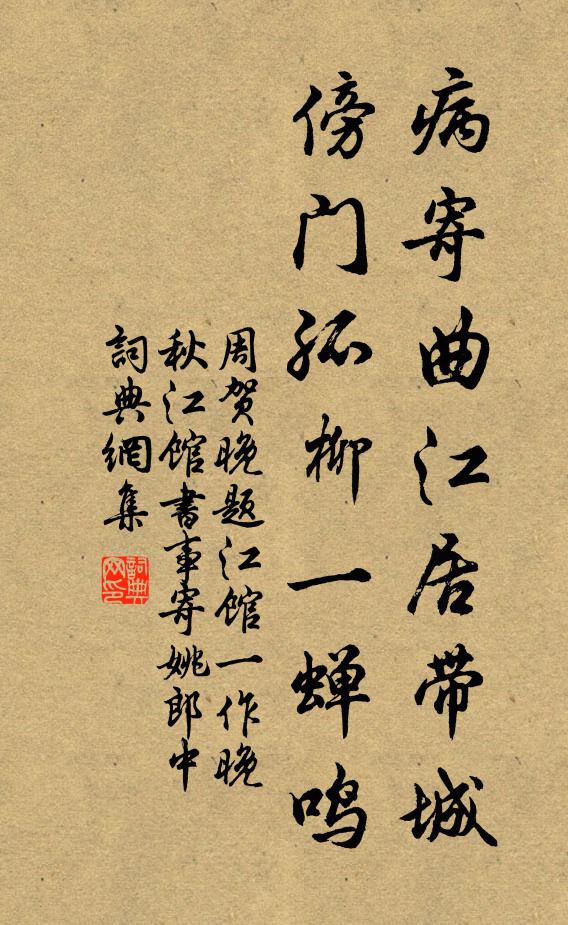 病寄曲江居带城
傍门孤柳一蝉鸣
周贺晚题江馆一作晚
秋江馆书事寄姚郎中
詞典網集
詞典网印